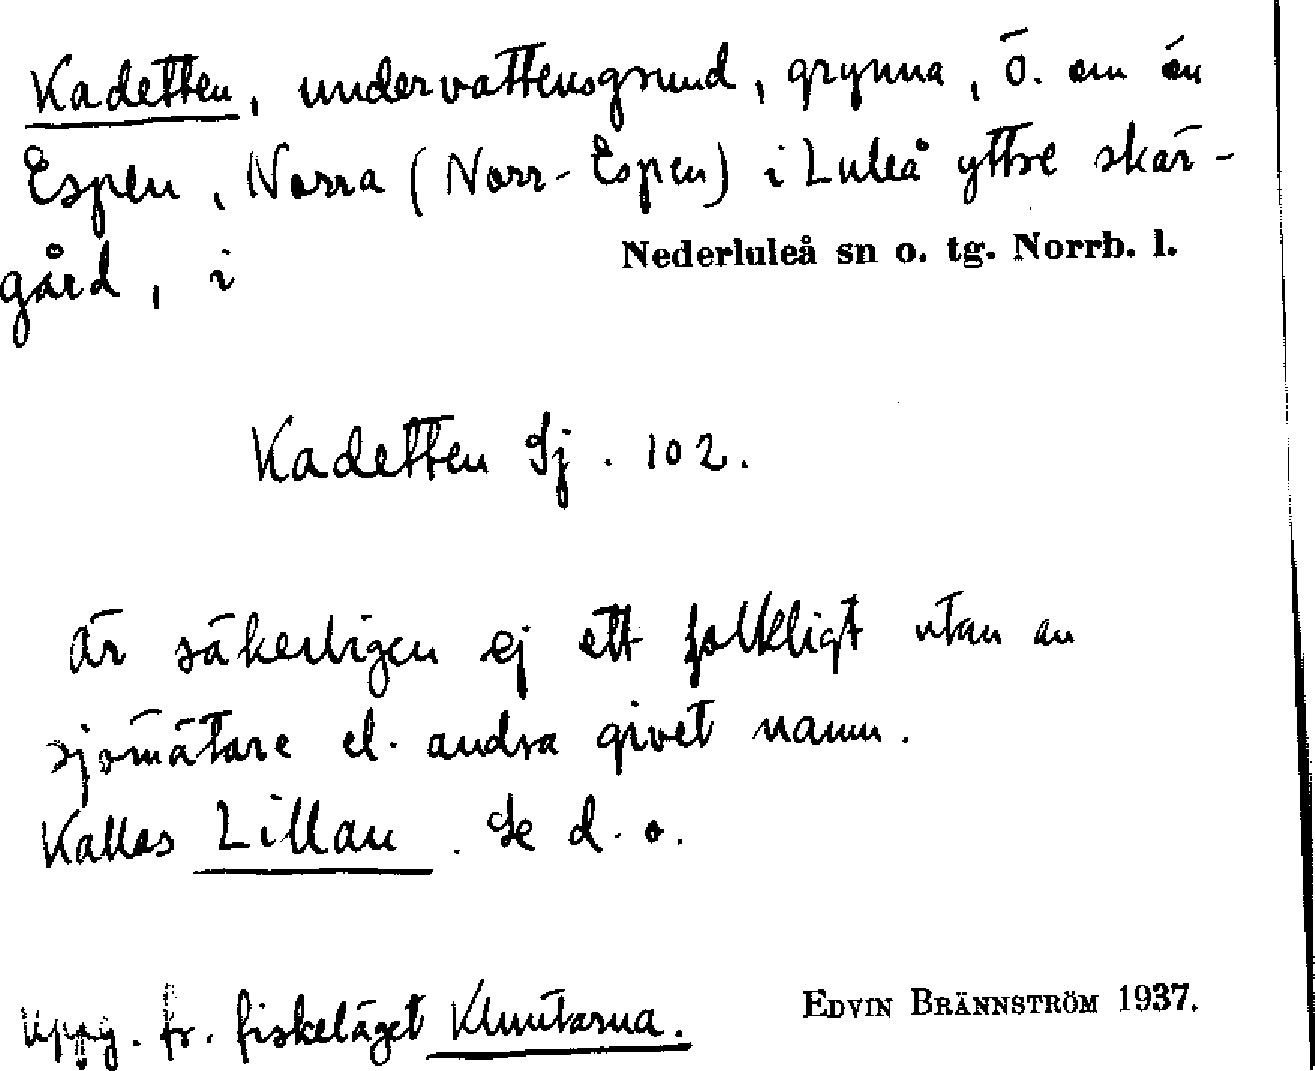 Kadetten, undervattensgrund, grynna, Ö. om ön
Espen, Norra (Norr-Espen) i Luleå yttre skär-
gård, i Nederluleå sn o. tg. Norrb. l.
Kadetten Sj. 102.
är säkerligen ej ett folkligt utan av
sjömätare el. andra givet namn.
Kallas Lillan. Se d. o.
Uppg. fr. fiskeläget Kluntarna.
EDVIN BRÄNNSTRÖM 1937.